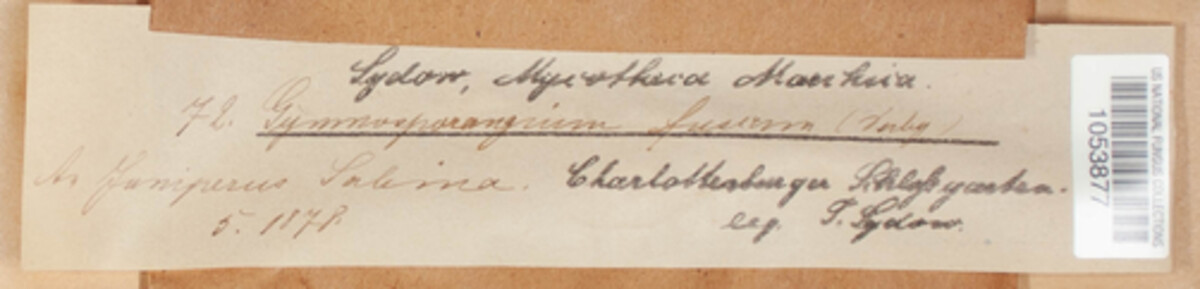 Sydow, Mycotheca Marchica.
72. Gymnosporangium fuscum
An Juniperus Sabina. Charlottenburger Schloßgarten.
5. 1878. leg. P. Sydow.
US NATIONAL FUNGUS COLLECTIONS
1053877